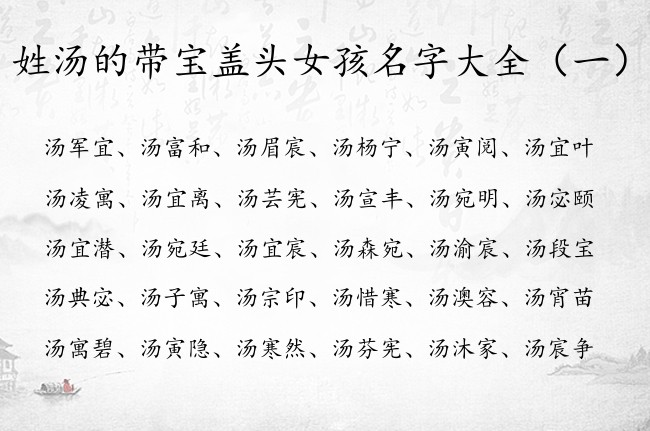 姓汤的带宝盖头女孩名字大全（一）
汤军宜、汤富和、汤眉宸、汤杨宁、汤寅阅、汤宜叶
汤凌寓、汤宜离、汤芸宪、汤宣丰、汤宛明、汤宓颐
汤宜潜、汤宛廷、汤宜宸、汤森宛、汤渝宸、汤段宝
汤典宓、汤子寓、汤宗印、汤惜寒、汤澳容、汤宵苗
汤寓碧、汤寅隐、汤寒然、汤芬宪、汤沐家、汤宸争